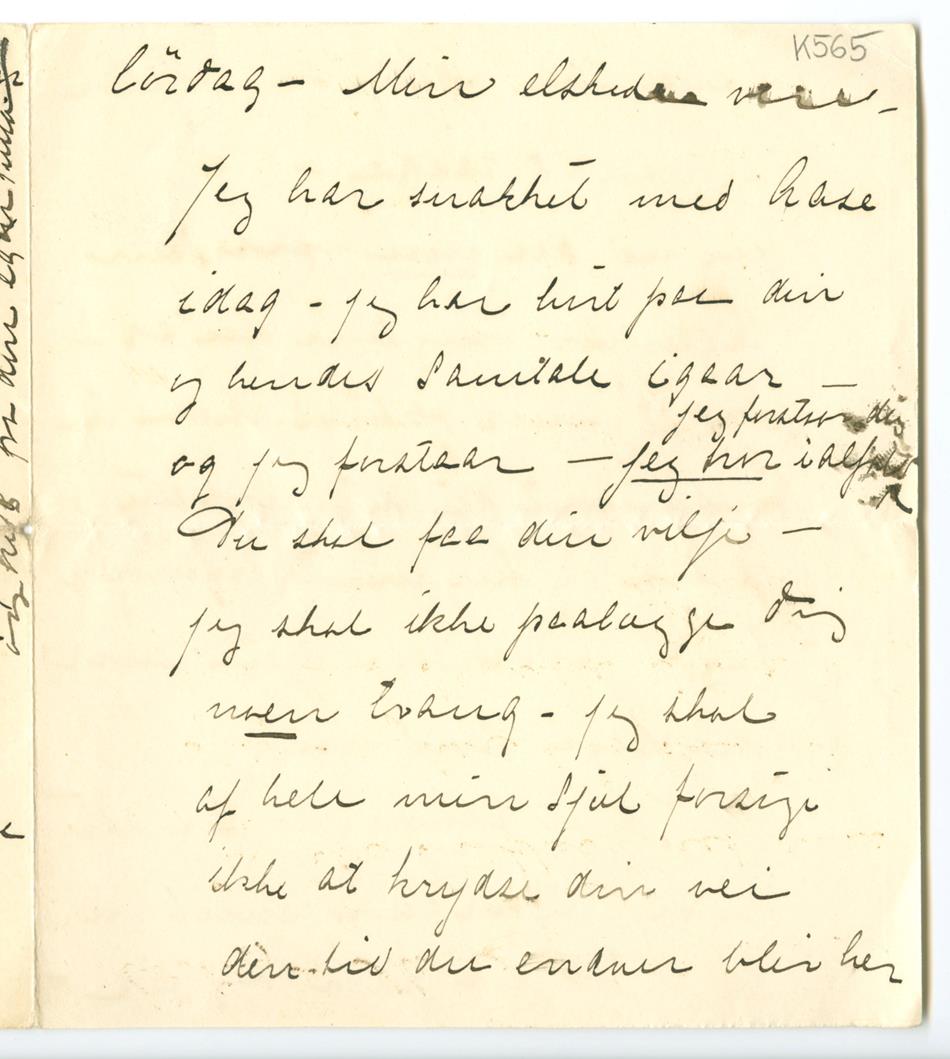 K565
Lördag – Min elskede ven –
Jeg har snakket med Aase
idag – jeg har hört paa din
og hendes Samtale igaar –
jeg forstaar dig
og jeg forstaar – jeg tror ialfald
Du skal faa din vilje –
jeg skal ikke paalægge Dig
noen tvang – jeg skal
af hele min Sjæl forsöge
ikke at krydse din vei
den tid du endnu blir her